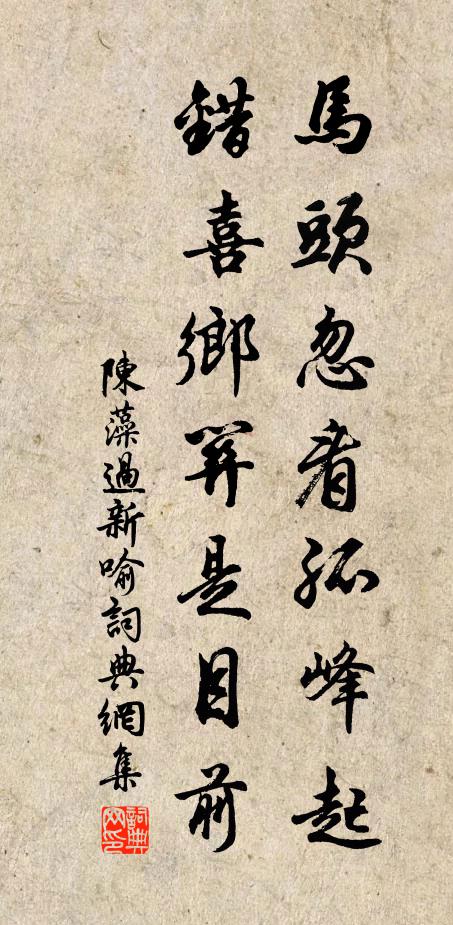 馬頭忽看孤峰起
錯喜鄉關是目前
陳藻過新喻詞典網集
詞典網印